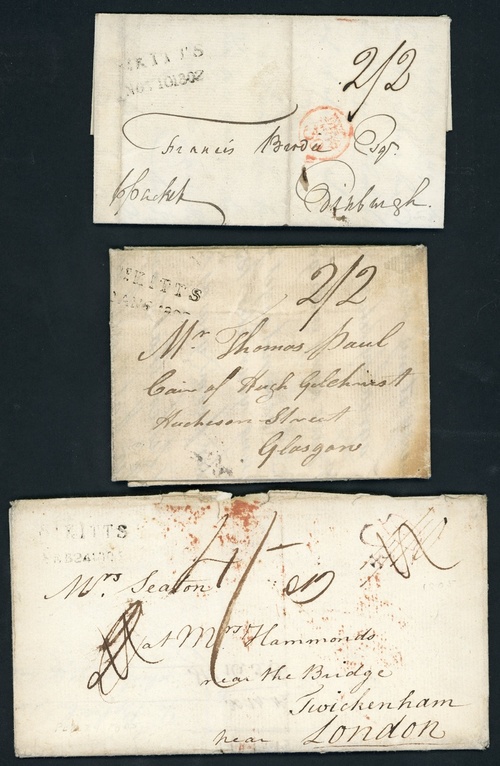 KITTS
NOV 10 1802
2/2
Francis Esqr.
Packet Edinburgh.
St KITTS
2/2
Mr Thomas Paul
Care of Hugh Gilchrist
Hucheson Street
Glasgow
KITTS
4/-
Mrs. Seaton
at Mrs Hammonds
near the Bridge
Twickenham
near London